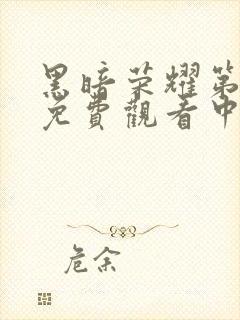 黑暗荣耀第
免費觀看中
危余